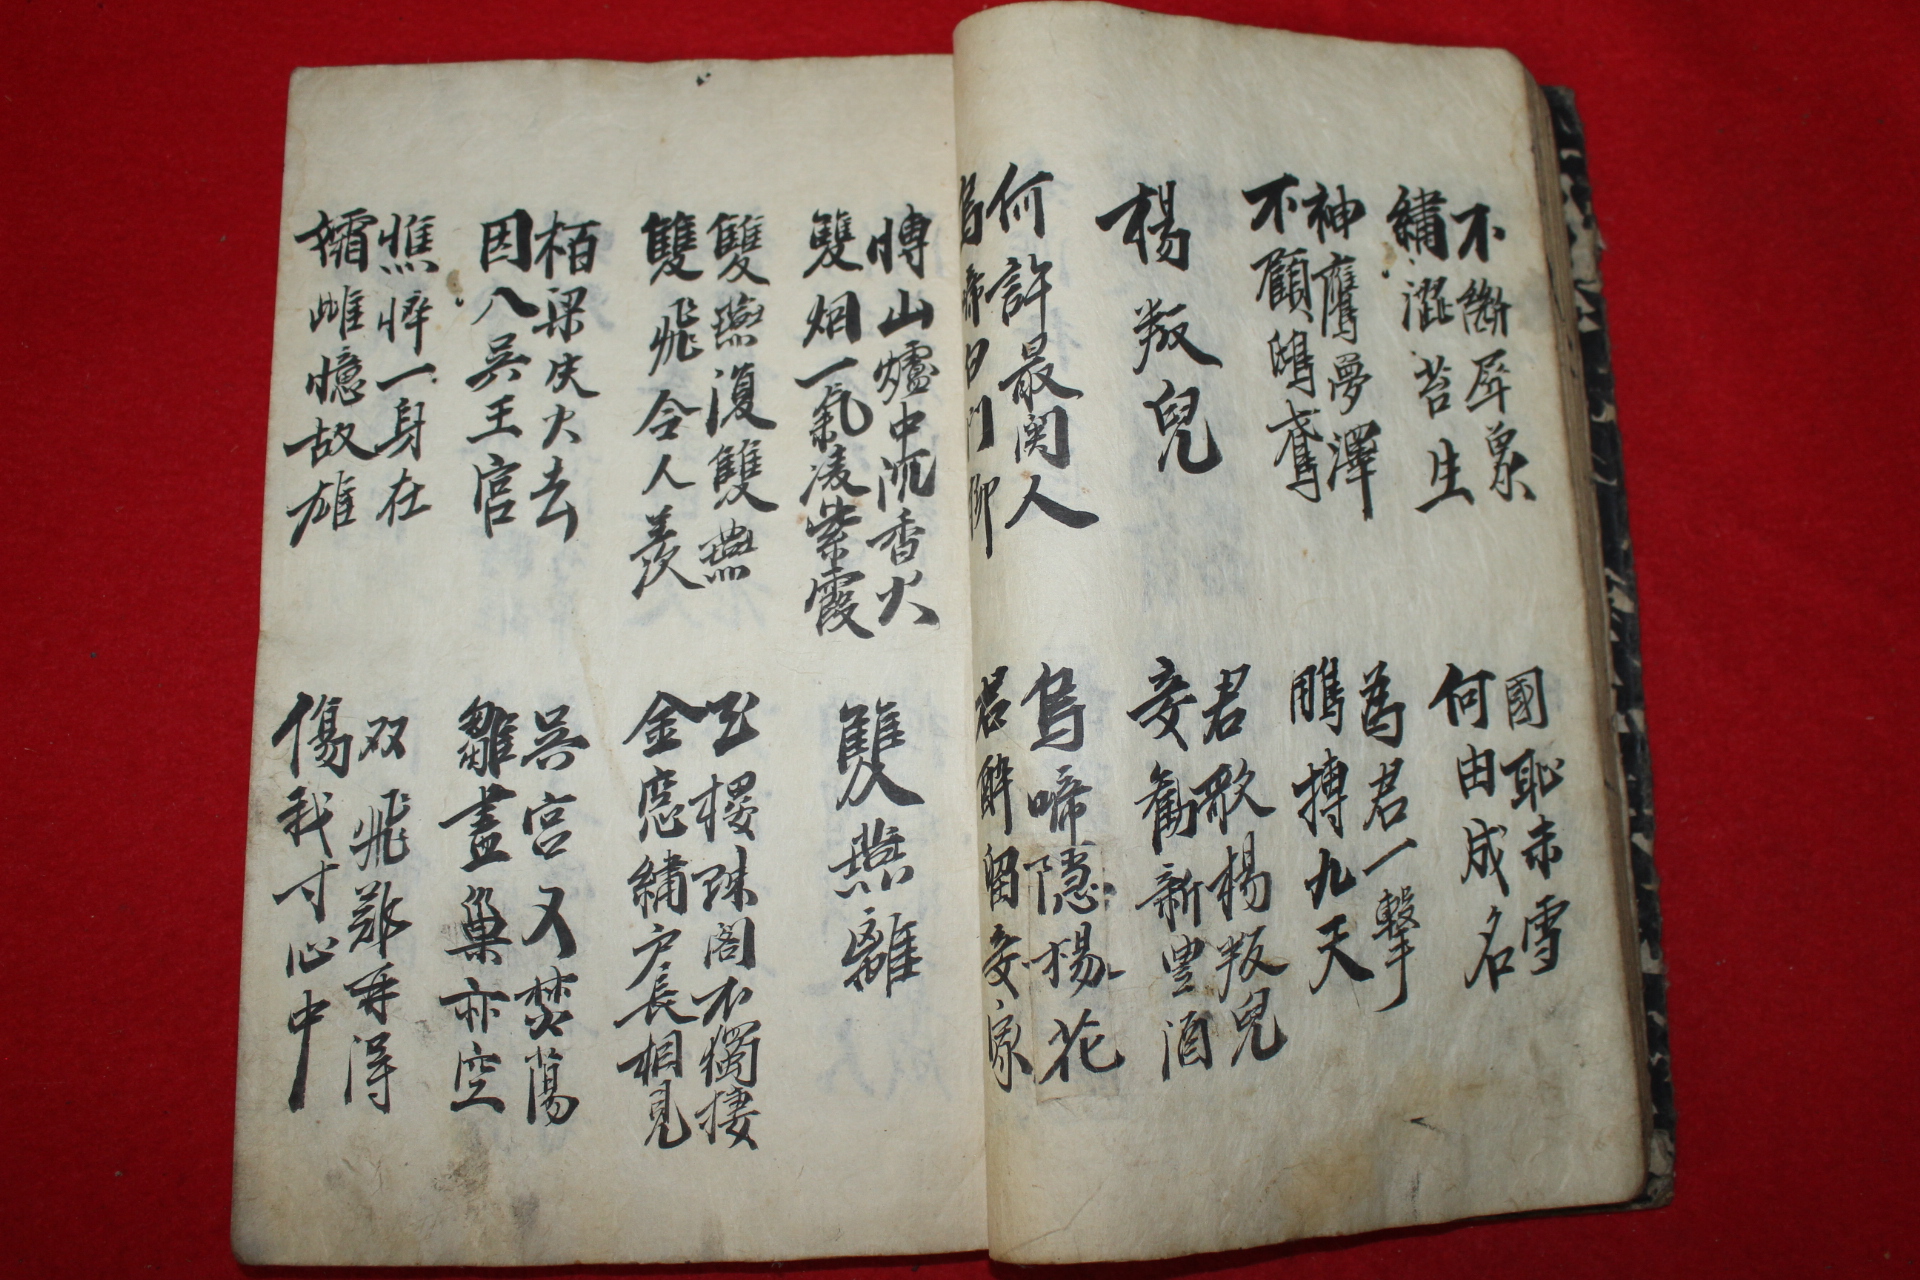 不斷犀象
繡澁苔生
國恥未雪
何由成名
神鷹夢澤
不顧鴟鳶
為君一擊
鵬搏九天
楊叛兒
君歌楊叛兒
妾勸新豊酒
何許最関人
烏啼白門柳
烏啼隱楊花
君醉留妾家
博山爐中沉香火
雙烟一氣凌紫霞
雙燕離
雙燕復雙燕
雙飛令人羨
玉樓珠閣不獨棲
金窓繡户長相見
栢梁失火去
因入吳王宮
吳宮又焚蕩
雛盡巢亦空
憔悴一身在
孀雌憶故雄
双飛難再得
傷我寸心中